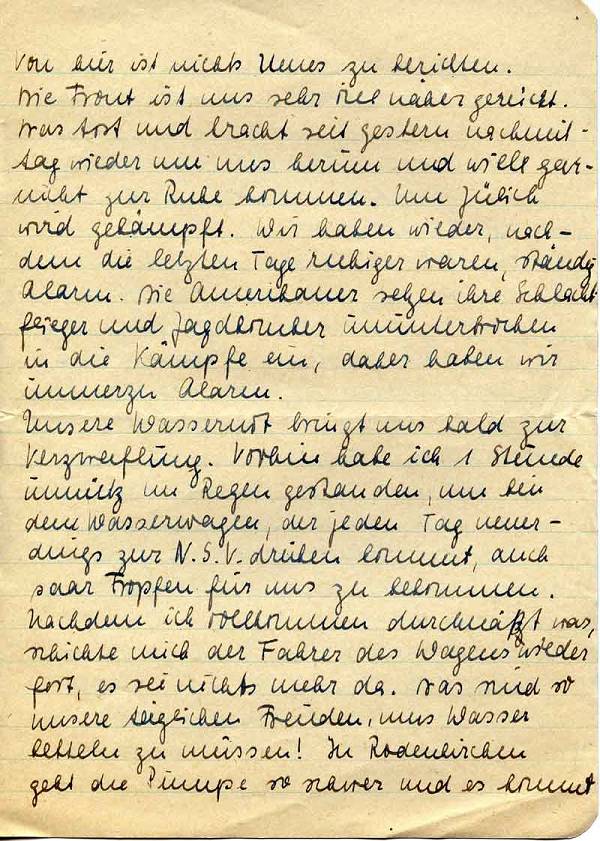 Von hier ist nichts Neues zu berichten.
Die Front ist uns sehr viel näher gerückt.
Das tost und kracht seit gestern nachmit-
tag wieder um uns herum und will gar-
nicht zur Ruhe kommen. Um Jülich
wird gekämpft. Wir haben wieder, nach-
dem die letzten Tage ruhiger waren, ständig
Alarm. Die Amerikaner setzen ihre Schlacht-
flieger und Jagdbomber ununterbrochen
in die Kämpfe ein, daher haben wir
immerzu Alarm.
Unsere Wassernot bringt uns bald zur
Verzweiflung. Vorhin habe ich 1 Stunde
unnütz im Regen gestanden, um bei
dem Wasserwagen, der jeden Tag neuer-
dings zur N.S.V. drüben kommt, auch
paar Tropfen für uns zu bekommen.
Nachdem ich vollkommen durchnäßt war,
schickte mich der Fahrer des Wagens wieder
fort, es sei nichts mehr da. Das sind so
unsere täglichen Freuden, uns Wasser
betteln zu müssen! In Rodenkirchen
geht die Pumpe so schwer und es kommt